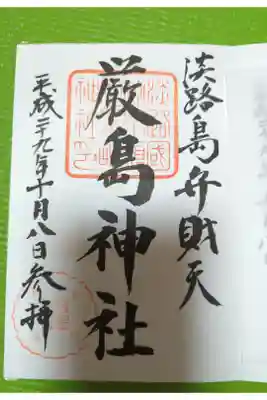 淡路島弁財天
厳島神社
平成二十九年十月八日参拝